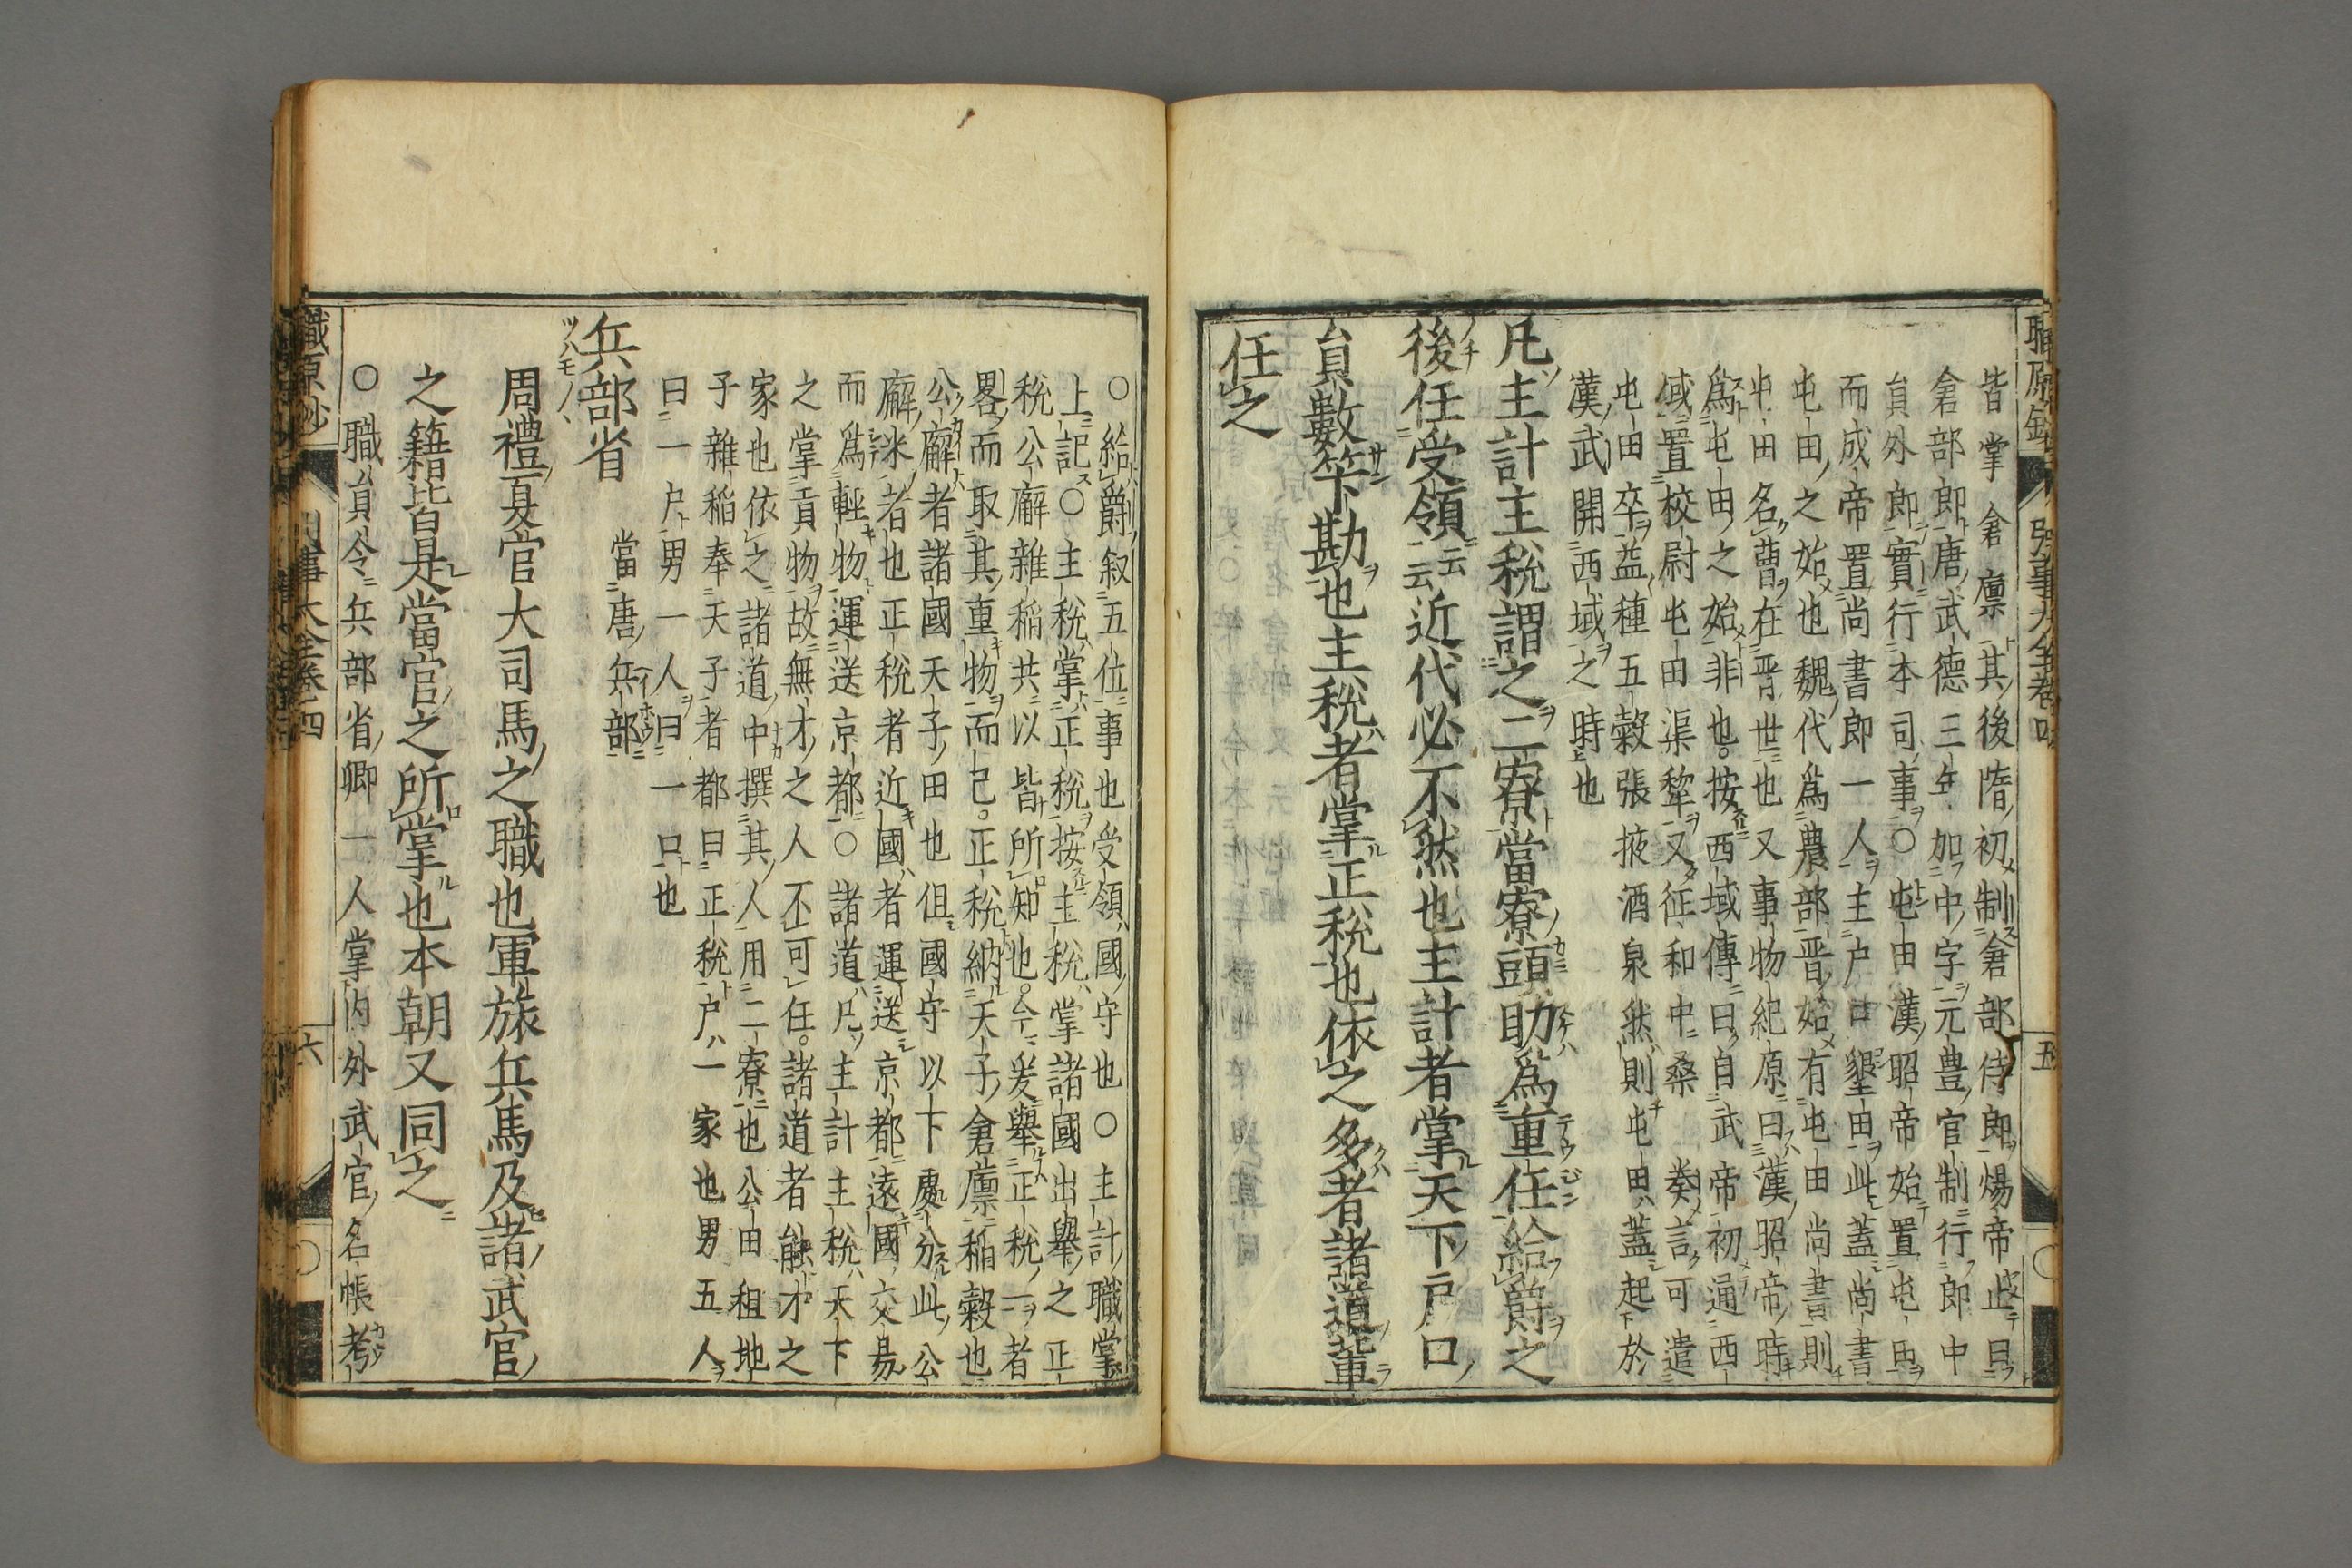 皆掌倉廩其後隋初制倉部侍郎煬帝止曰
倉部郎唐武德三年加中字元豊官制行郎中
員外郎實行本司事○屯田漢昭帝始置屯田
而成帝置尚書郎一人主戸口墾田此蓋尚書
屯田之始也魏代爲農部晋始有屯田尚書則
屯田名曹在晋世也又事物紀原曰漢昭帝時
爲屯田之始非也按西域傳曰自武帝初通西
域置校尉屯田渠犂又征和中桑 奏言可遣
屯田卒益種五穀張掖酒泉然則屯田蓋起於
漢武開西域之時也
凡主計主税謂之二寮當寮頭助爲重任給爵之
後任受領云云近代必不然也主計者掌天下戸口
員數等勘也主税者掌正税也依之多者諸道輩
任之
○給爵叙五位事也受領國守也○主計職掌
上記○主税掌正税按主税掌諸國出擧之正
税公廨雜稲共以皆所知也今爰擧正税一者
畧而取其重物而已正税納天子倉廩稲穀也
公廨者諸國天子田也但國守以下處分此公
廨米者也正税者近國者運送京都遠國交易
而爲輕物運送京都○諸道凡主計主税天下
之掌貢物故無才之人不可任諸道者能才之
家也依之諸道中撰其人用二寮也公田租地
子雜稲奉天子者都曰正税戸一家也男五人
曰一戸男一人曰一口也
兵部省 當唐兵部
周禮夏官大司馬之職也軍旅兵馬及諸武官
之籍皆是當官之所掌也本朝又同之
○職員令兵部省卿一人掌内外武官名帳考
職原鈔
六
五